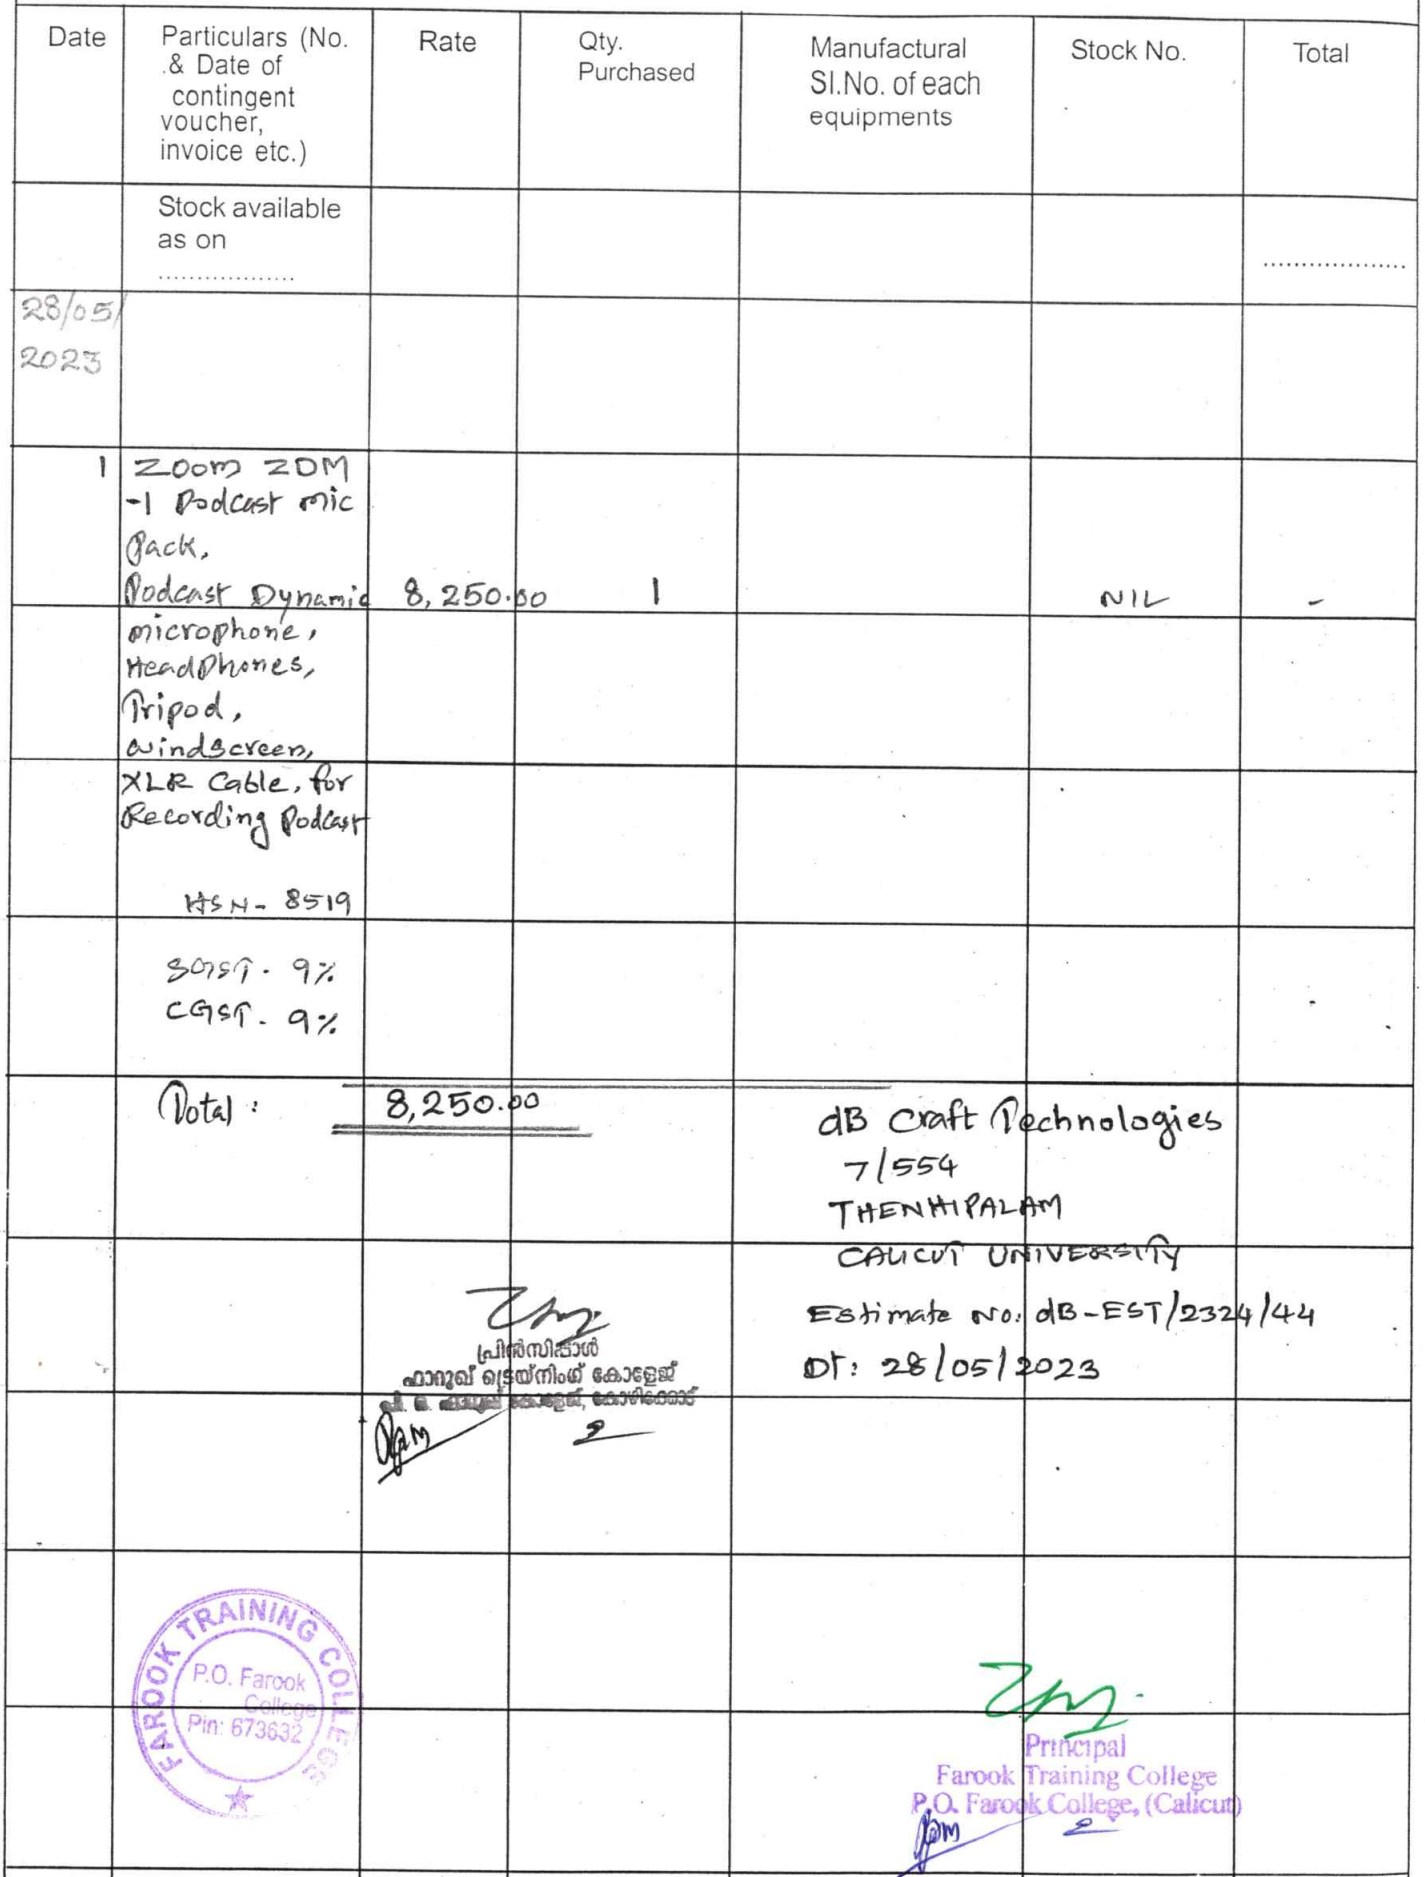 Date
Particulars (No.
.& Date of
contingent
voucher,
invoice etc.)
Rate
Qty.
Purchased
Manufactural
Sl.No. of each
equipments
Stock No.
Total
Stock available
as on
.................
..................
28/05/
2023
1 Zoom ZDM
-1 Podcast mic
Pack,
Podcast Dynamic 8,250.00 1 NIL -
microphone,
Headphones,
Tripod,
windscreen,
XLR Cable, for
Recording Podcast
HSN- 8519
SGST- 9%
CGST- 9%
Total: 8,250.00
dB Craft Technologies
7/554
THENHIPALAM
CALICUT UNIVERSITY
Estimate No: dB-EST/2324/44
Dt: 28/05/2023
പ്രിൻസിപ്പാൾ
ഫാറൂഖ് ട്രെയ്നിംഗ് കോളേജ്
പി. ഒ. ഫാറൂഖ് കോളേജ്, കോഴിക്കോട്
FAROOK TRAINING COLLEGE
P.O. Farook
College
Pin: 673632
Principal
Farook Training College
P.O. Farook College, (Calicut)